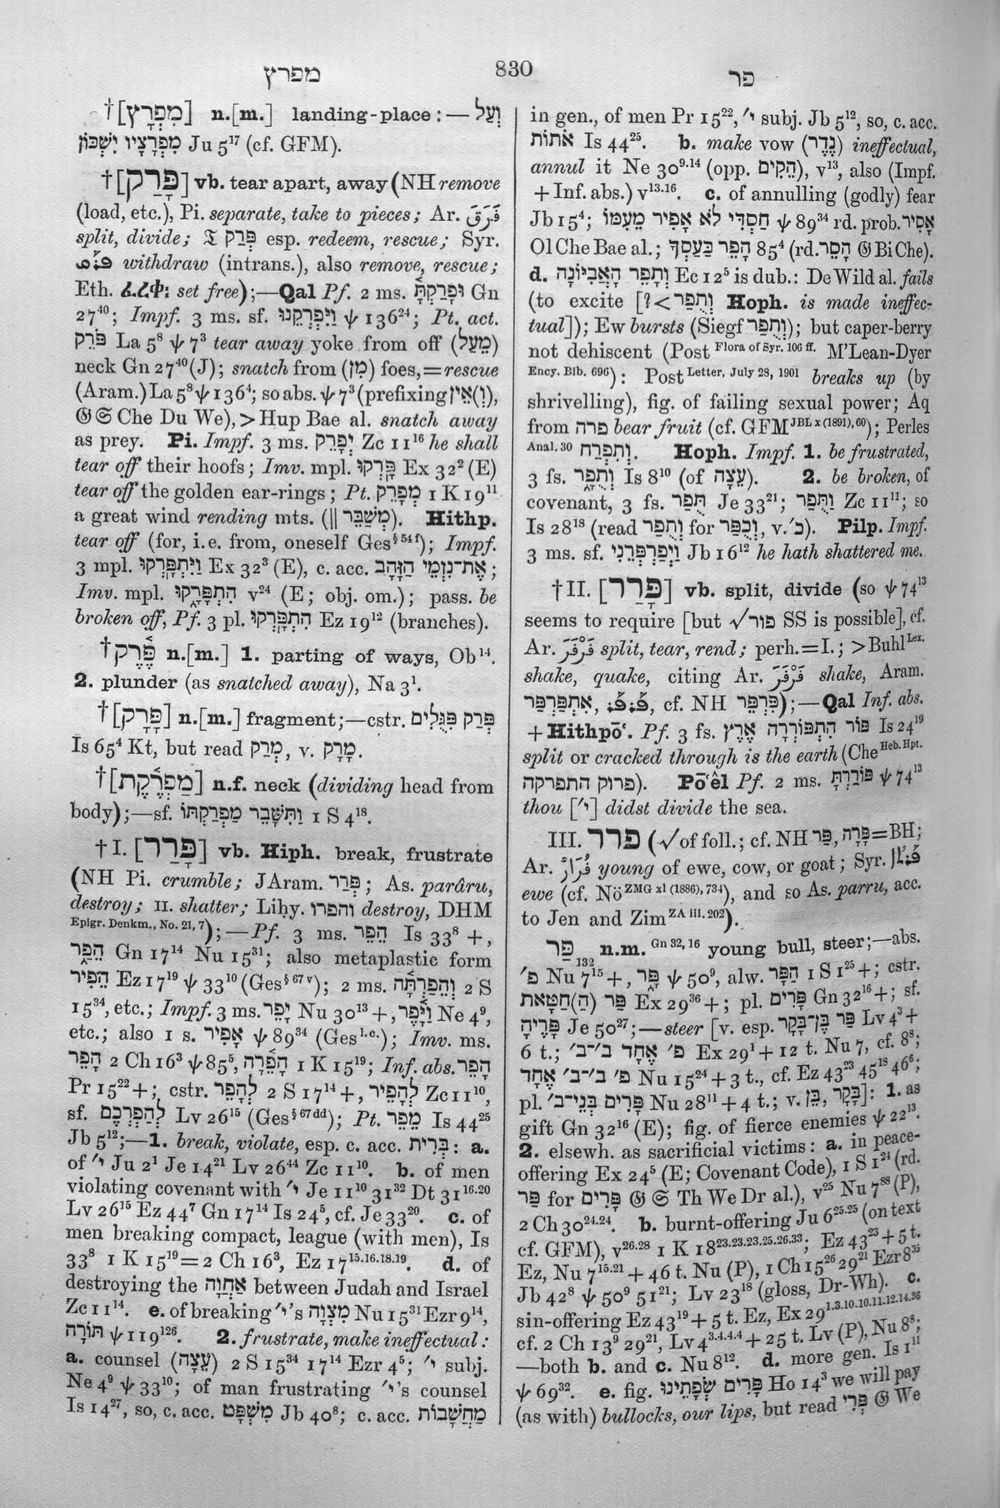 מפרץ
830
פר
†[מִפְרָץ] n.[m.] landing-place :— וְעַל
מִפְרָצָיו יִשְׁכּוֹן Ju 5¹⁷ (cf. GFM).
†[פָּרַק] vb. tear apart, away (NH remove
(load, etc.), Pi. separate, take to pieces; Ar. فَرَقَ
split, divide; 𝔗 פְּרַק esp. redeem, rescue; Syr.
withdraw (intrans.), also remove, rescue;
Eth. set free);—Qal Pf. 2 ms. וּפָרַקְתָּ Gn
27⁴⁰; Impf. 3 ms. sf. וַיִּפְרְקֵנוּ ψ 136²⁴; Pt. act.
פֹּרֵק La 5⁸ ψ 7³ tear away yoke from off (מֵעַל)
neck Gn 27⁴⁰ (J); snatch from (מִן) foes,=rescue
(Aram.) La 5⁸ ψ 136⁴; so abs. ψ 7³ (prefixing וְ)אֵין),
𝔊 𝔖 Che Du We), > Hup Bae al. snatch away
as prey. Pi. Impf. 3 ms. יְפָרֵק Zc 11¹⁶ he shall
tear off their hoofs; Imv. mpl. פָּרְקוּ Ex 32² (E)
tear off the golden ear-rings; Pt. מְפָרֵק 1 K 19¹¹
a great wind rending mts. (‖ מְשַׁבֵּר). Hithp.
tear off (for, i.e. from, oneself Ges§ 54 f); Impf.
3 mpl. וַיִּתְפָּרְקוּ Ex 32³ (E), c. acc. אֶת־נִזְמֵי הַזָּהָב;
Imv. mpl. הִתְפָּרָקוּ v²⁴ (E; obj. om.); pass. be
broken off, Pf. 3 pl. הִתְפָּרְקוּ Ez 19¹² (branches).
†פֶּרֶק n.[m.] 1. parting of ways, Ob¹⁴.
2. plunder (as snatched away), Na 3¹.
†[פָּרָק] n.[m.] fragment;—cstr. פְּרַק פִּגֻּלִים
Is 65⁴ Kt, but read מְרַק, v. מָרָק.
†[מַפְרֶקֶת] n.f. neck (dividing head from
body);—sf. וַתִּשָּׁבֵר מַפְרַקְתּוֹ 1 S 4¹⁸.
†I. [פָּרַר] vb. Hiph. break, frustrate
(NH Pi. crumble; JAram. פְּרַר; As. parâru,
destroy; II. shatter; Liḥy. והפרו destroy, DHM
Epigr. Denkm., No. 21, 7);—Pf. 3 ms. הֵפֵר Is 33⁸ +,
הֵפַר Gn 17¹⁴ Nu 15³¹; also metaplastic form
הֵפִיר Ez 17¹⁹ ψ 33¹⁰ (Ges§ 67 v); 2 ms. וְהֵפַרְתָּה 2 S
15³⁴, etc.; Impf. 3 ms. יָפֵר Nu 30¹³ +, וַיָּפֶר Ne 4⁹,
etc.; also 1 s. אָפִיר ψ 89³⁴ (Ges l.c.); Imv. ms.
הָפֵר 2 Ch 16³ ψ 85⁵, הָפֵרָה 1 K 15¹⁹; Inf. abs. הָפֵר
Pr 15²² +; cstr. לְהָפֵר 2 S 17¹⁴ +, לְהָפִיר Zc 11¹⁰,
sf. לְהַפְרְכֶם Lv 26¹⁵ (Ges§ 67 dd); Pt. מֵפֵר Is 44²⁵
Jb 5¹²;—1. break, violate, esp. c. acc. בְּרִית: a.
of י׳ Ju 2¹ Je 14²¹ Lv 26⁴⁴ Zc 11¹⁰. b. of men
violating covenant with י׳ Je 11¹⁰ 31³² Dt 31¹⁶·²⁰
Lv 26¹⁵ Ez 44⁷ Gn 17¹⁴ Is 24⁵, cf. Je 33²⁰. c. of
men breaking compact, league (with men), Is
33⁸ 1 K 15¹⁹ = 2 Ch 16³, Ez 17¹⁵·¹⁶·¹⁸·¹⁹. d. of
destroying the אַחֲוָה between Judah and Israel
Zc 11¹⁴. e. of breaking י׳'s מִצְוָה Nu 15³¹ Ezr 9¹⁴,
תּוֹרָה ψ 119¹²⁶. 2. frustrate, make ineffectual :
a. counsel (עֵצָה) 2 S 15³⁴ 17¹⁴ Ezr 4⁵; י׳ subj.
Ne 4⁹ ψ 33¹⁰; of man frustrating י׳'s counsel
Is 14²⁷, so, c. acc. מִשְׁפָּט Jb 40⁸; c. acc. מַחֲשָׁבוֹת
in gen., of men Pr 15²², י׳ subj. Jb 5¹², so, c. acc.
אֹתוֹת Is 44²⁵. b. make vow (נֶדֶר) ineffectual,
annul it Ne 30⁹·¹⁴ (opp. הֵקִים), v¹³, also (Impf.
+ Inf. abs.) v¹³·¹⁶. c. of annulling (godly) fear
Jb 15⁴; חַסְדִּי לֹא אָפִיר מֵעִמּוֹ ψ 89³⁴ rd. prob. אָסִיר
Ol Che Bae al.; הָפֵר כַּעַסְךָ 85⁴ (rd. הָסֵר 𝔊 Bi Che).
d. וְתָפֵר הָאֲבִיּוֹנָה Ec 12⁵ is dub.: De Wild al. fails
(to excite [? < וְתֻפַר Hoph. is made ineffec-
tual]); Ew bursts (Siegf וְתֻפַר); but caper-berry
not dehiscent (Post Flora of Syr. 106 ff. M'Lean-Dyer
Ency. Bib. 696): Post Letter, July 28, 1901 breaks up (by
shrivelling), fig. of failing sexual power; Aq
from פרה bear fruit (cf. GFM JBL x (1891), 60); Perles
Anal. 30 וְתִפְרַח. Hoph. Impf. 1. be frustrated,
3 fs. וְתֻפָר Is 8¹⁰ (of עֵצָה). 2. be broken, of
covenant, 3 fs. תֻּפַר Je 33²¹; וַתֻּפַר Zc 11¹¹; so
Is 28¹⁸ (read וְתֻפַר for וְכֻפַּר, v. כ׳). Pilp. Impf.
3 ms. sf. וַיְפַרְפְּרֵנִי Jb 16¹² he hath shattered me.
†II. [פָּרַר] vb. split, divide (so ψ 74¹³
seems to require [but √פור SS is possible], cf.
Ar. فَرْفَرَ split, tear, rend; perh.=I.; > Buhl Lex.
shake, quake, citing Ar. فَرْفَرَ shake, Aram.
אִתְפַּרְפַּר, cf. NH פִּרְפֵּר);—Qal Inf. abs.
+ Hithpōʿ. Pf. 3 fs. פּוֹר הִתְפּוֹרְרָה אֶרֶץ Is 24¹⁹
split or cracked through is the earth (Che Heb. Hpt.
פרוק התפרקה). Pōʿēl Pf. 2 ms. פּוֹרַרְתָּ ψ 74¹³
thou [י׳] didst divide the sea.
III. פרר (√of foll.; cf. NH פַּר, פָּרָה=BH;
Ar. فُرَارٌ young of ewe, cow, or goat; Syr.
ewe (cf. Nö ZMG xl (1886), 734), and so As. parru, acc.
to Jen and Zim ZA iii. 202).
פַּר 132 n.m. Gn 32, 16 young bull, steer;—abs.
פ׳ Nu 7¹⁵ +, פָּר ψ 50⁹, alw. הַפָּר 1 S 1²⁵ +; cstr.
פַּר (הַ)חַטָּאת Ex 29³⁶ +; pl. פָּרִים Gn 32¹⁶ +; sf.
פָּרֶיהָ Je 50²⁷;—steer [v. esp. פַּר בֶּן־בָּקָר Lv 4³ +
6 t.; פ׳ אֶחָד ב׳־ב׳ Ex 29¹ + 12 t. Nu 7, cf. 8⁸;
פ׳ ב׳־ב׳ אֶחָד Nu 15²⁴ + 3 t., cf. Ez 43²³ 45¹⁸ 46⁶;
pl. פָּרִים בְּנֵי־ב׳ Nu 28¹¹ + 4 t.; v. בֵּן, בָּקָר]: 1. as
gift Gn 32¹⁶ (E); fig. of fierce enemies ψ 22¹³.
2. elsewh. as sacrificial victims : a. in peace-
offering Ex 24⁵ (E; Covenant Code), 1 S 1²⁴ (rd.
פַּר for פָּרִים 𝔊 𝔖 Th We Dr al.), v²⁵ Nu 7⁸⁸ (P),
2 Ch 30²⁴·²⁴. b. burnt-offering Ju 6²⁵·²⁵ (on text
cf. GFM), v²⁶·²⁸ 1 K 18²³·²³·²³·²⁵·²⁶·³³; Ez 43²³ + 5 t.
Ez, Nu 7¹⁵·²¹ + 46 t. Nu (P), 1 Ch 15²⁶ 29²¹ Ezr 8³⁵
Jb 42⁸ ψ 50⁹ 51²¹; Lv 23¹⁸ (gloss, Dr-Wh). c.
sin-offering Ez 43¹⁹ + 5 t. Ez, Ex 29¹·³·¹⁰·¹⁰·¹¹·¹²·¹⁴·³⁶
cf. 2 Ch 13⁹ 29²¹, Lv 4³·⁴·⁴·⁴ + 25 t. Lv (P), Nu 8⁸;
—both b. and c. Nu 8¹². d. more gen. Is 1¹¹
ψ 69³². e. fig. פָּרִים שְׂפָתֵינוּ Ho 14³ we will pay
(as with) bullocks, our lips, but read פְּרִי 𝔊 We